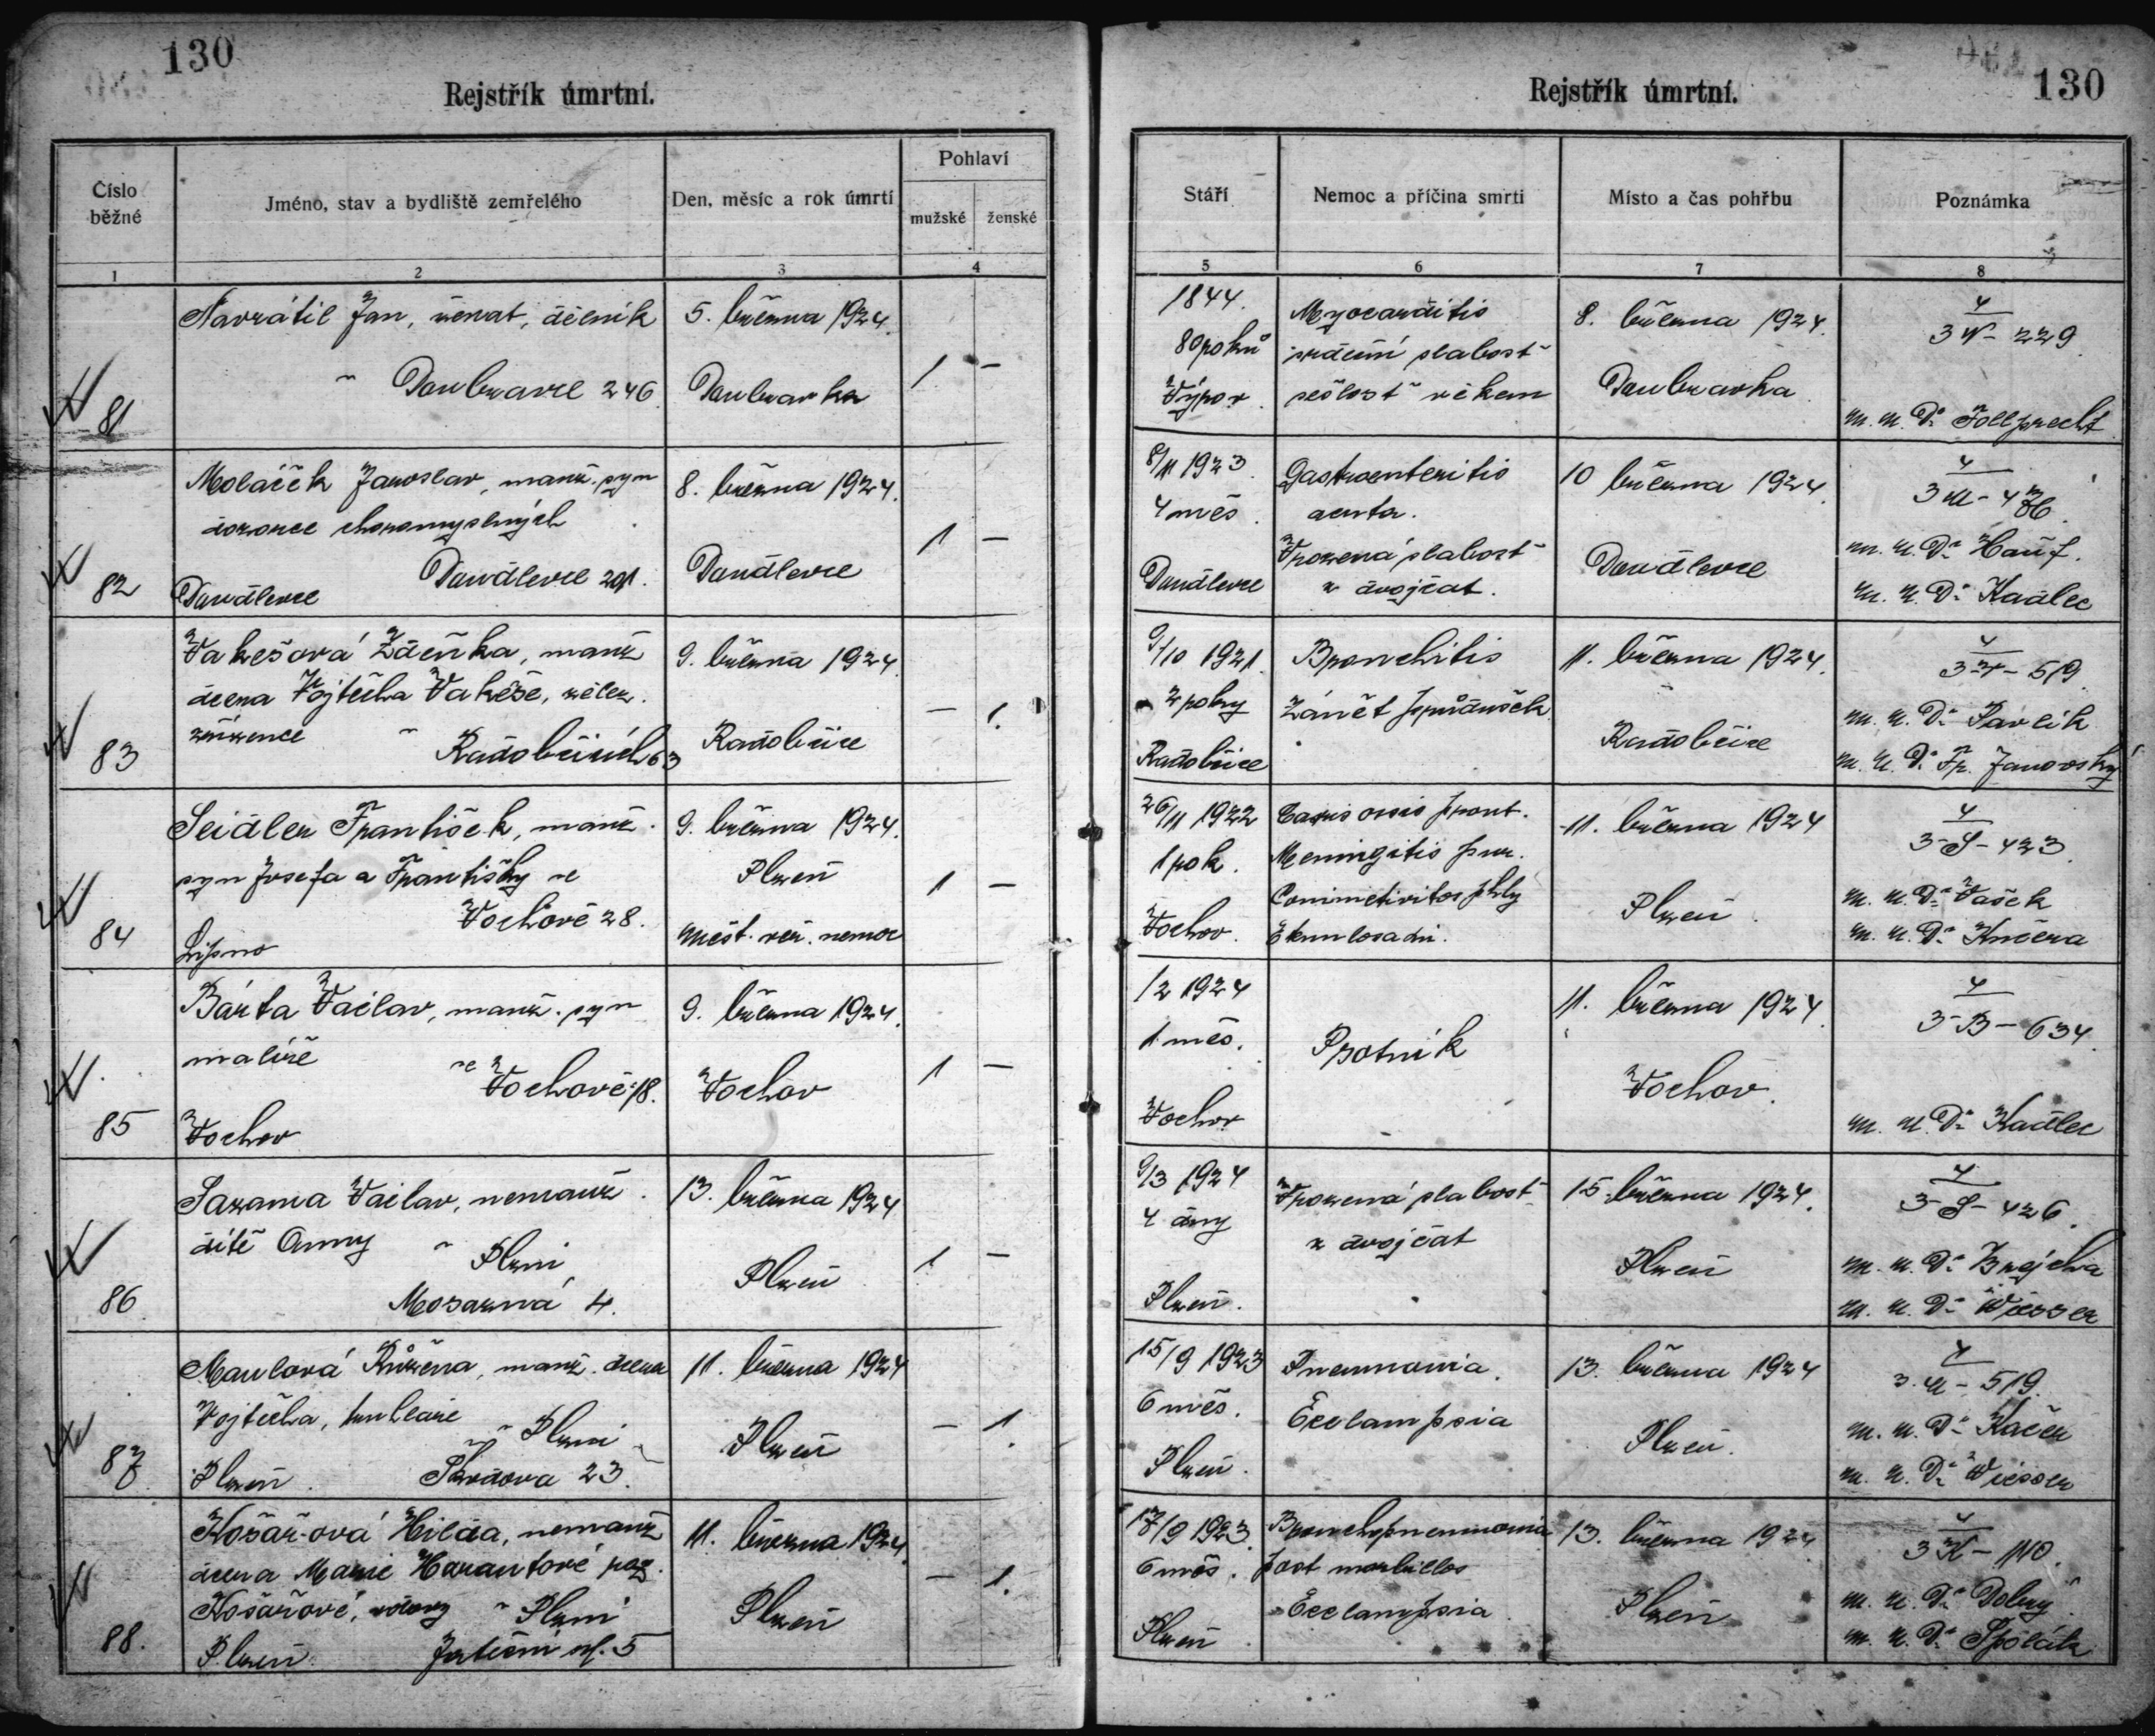 130
Rejstřík úmrtní.
Číslo běžné
Jméno, stav a bydliště zemřelého
Den, měsíc a rok úmrtí
Pohlaví
mužské
ženské
1
2
3
4
Navrátil Jan, ženat, dělník
5. března 1924.
v Doubravce 246.
Doubravka
1
–
81
Moláček Jaroslav, manž. syn
8. března 1924.
dozorce choromyslných
1
–
Doudlevce 201.
Doudlevce
82
Doudlevce
Vakešová Zdeňka, manž
9. března 1924
dcera Vojtěcha Vakeše, želez.
– 1.
zřízence
v Radobčicích 63
Radobčice
83
Seidler František, manž.
9. března 1924.
syn Josefa a Františky ve
Plzeň
1
–
Vochově 28.
Měst. veř. nemoc
84
Lipno
Bárta Václav, manž. syn
9. března 1924.
malíře
ve Vochově 18.
Vochov
1
–
85
Vochov
Sazama Václav, nemanž.
13. března 1924
dítě Anny
v Plzni
Plzeň
1
–
86
4.
Maulová Růžena, manž. dcera
11. března 1924
Vojtěcha, truhláře
v Plzni
Plzeň
– 1.
87
Plzeň.
23.
Košař-ová Hilda, nemanž
11. března 1924.
dcera Marie Harantové roz.
– 1.
Košařové, vdovy v Plzni
Plzeň
88.
Plzeň.
Jateční ul. 5
Rejstřík úmrtní.
130
Stáří
Nemoc a příčina smrti
Místo a čas pohřbu
Poznámka
5
6
7
8
1844.
Myocarditis
8. března 1924.
4
80 roků
srdeční slabost
3 N - 229
Výpov.
sešlost věkem
Doubravka.
m. u. Dr
8/11 1923
Gastroenteritis
10 března 1924.
4
4 měs.
acuta.
3 M -
Vrozená slabost
m. u. Dr Hauf.
Doudlevce
z dvojčat.
Doudlevce
m. u. Dr Kadlec
9/10 1921
Bronchitis
11. března 1924.
4
2 roky
Zánět průdušek
3-V- 519.
Radobčice
Radobčice
m. u. Dr Pavlík
m. u. Dr Fr. Janovský
26/11 1922
Caries ossis front.
11. března 1924
4
1 rok.
Meningitis pur.
3-S- 423.
Vochov.
Plzeň.
m. u. Dr Vašek
m. u. Dr Kučera
/2 1924
11. března 1924.
4
1 měs.
Psotník
3-B- 634.
Vochov
Vochov.
m. u. Dr Kadlec
9/3 1924
Vrozená slabost
15. března 1924.
4
4 dny
z dvojčat
3-S- 426.
Plzeň.
Plzeň
m. u. Dr Brejcha
m. u. Dr Wiesser
15/9 1923
Pneumonia.
13. března 1924
4
6 měs.
Ecclampsia
3-M- 519.
Plzeň.
Plzeň.
m. u. Dr Kačer
m. u. Dr Wiesser
17/9 1923.
Bronchopneumonia
13. března 1924
4
6 měs.
post morbillos
3 K - 1110.
Ecclampsia.
Plzeň
m. u. Dr Dobrý
Plzeň.
m. u. Dr Špolák